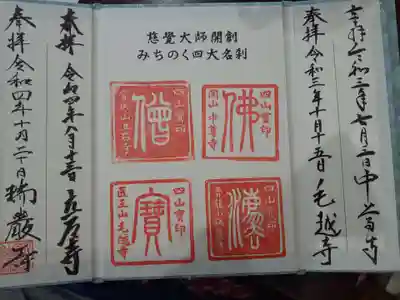 奉拝 令和三年七月二日 中尊寺
奉拝 令和三年十月十五日 毛越寺
慈覺大師開創
みちのく四大名刹
四山寳印
佛
関山 中尊寺
四山寳印
僧
立石寺
四山寳印
灋
四山寳印
寳
医王山 毛越寺
奉拝 令和四年八月十三日 立石寺
奉拝 令和四年十月二十日 瑞巌寺